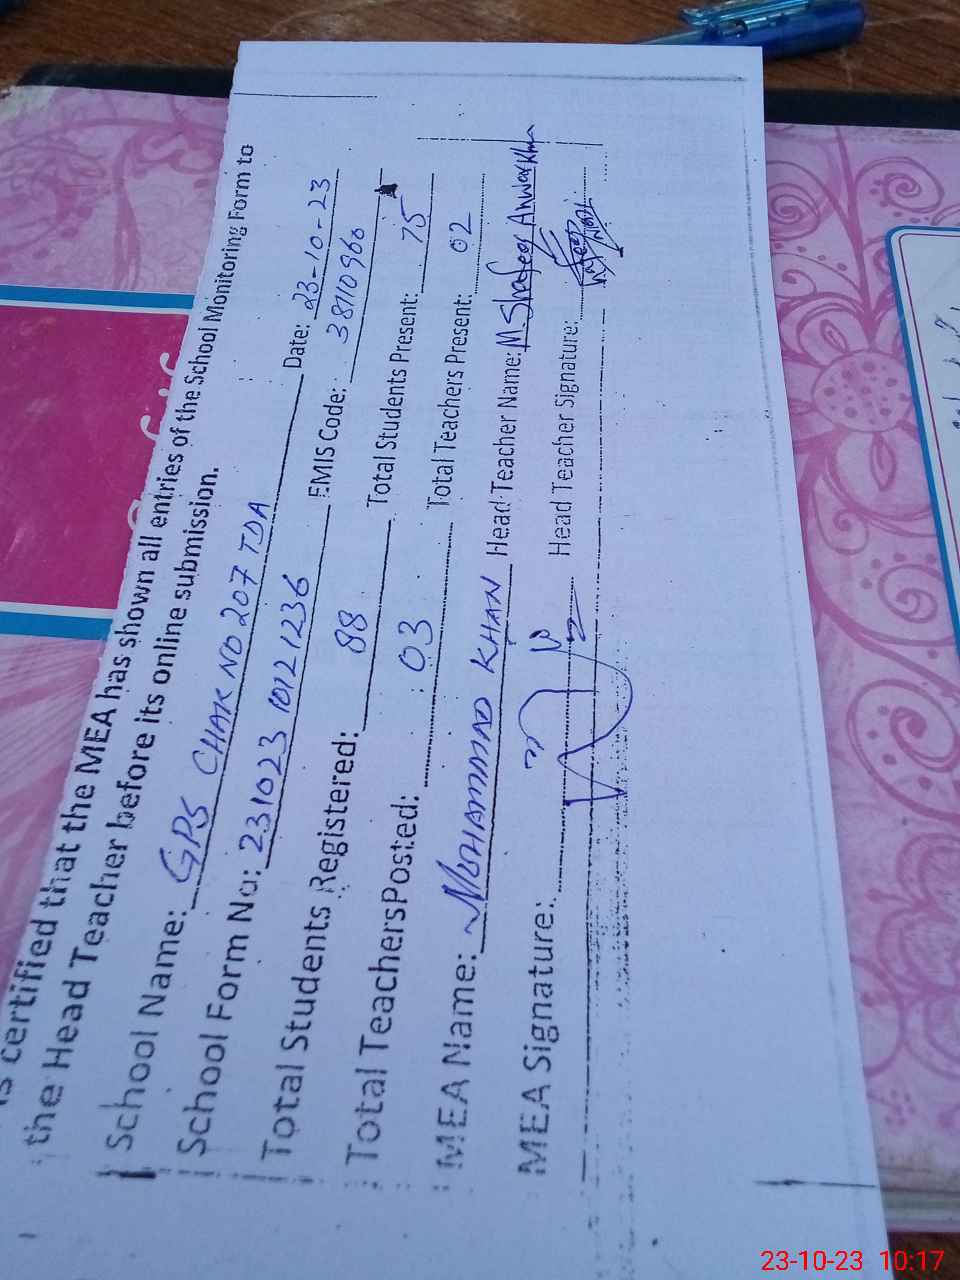 is certified that the MEA has shown all entries of the School Monitoring Form to
the Head Teacher before its online submission.
School Name: GPS CHAK NO 207 TDA Date: 23-10-23
School Form No: 231023 1012 1236 EMIS Code: 38110960
Total Students Registered: 88 Total Students Present: 75
Total TeachersPosted: 03 Total Teachers Present: 02
MEA Name: MOHAMMAD KHAN Head Teacher Name: M. Shafeeq Anwar Khan
MEA Signature: Head Teacher Signature:
23-10-23 10:17